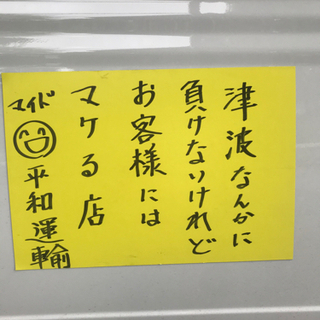 津波なんかに
負けないけれど
お客様には
マケる店
マイド
平和運輸